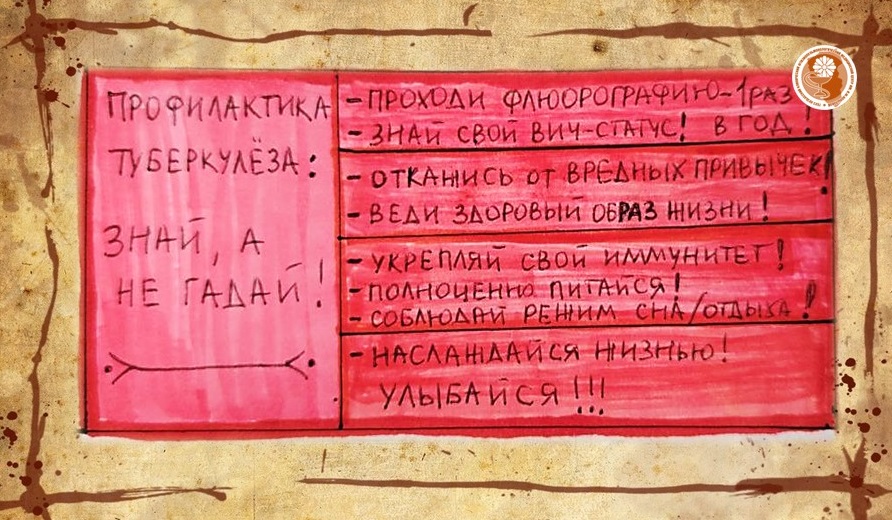 ПРОФИЛАКТИКА
ТУБЕРКУЛЁЗА:
ЗНАЙ, А
НЕ ГАДАЙ!
- ПРОХОДИ ФЛЮОРОГРАФИЮ-1РАЗ
- ЗНАЙ СВОЙ ВИЧ-СТАТУС! В ГОД!
- ОТКАЖИСЬ ОТ ВРЕДНЫХ ПРИВЫЧЕК!
- ВЕДИ ЗДОРОВЫЙ ОБРАЗ ЖИЗНИ!
- УКРЕПЛЯЙ СВОЙ ИММУНИТЕТ!
- ПОЛНОЦЕННО ПИТАЙСЯ!
- СОБЛЮДАЙ РЕЖИМ СНА/ОТДЫХА!
- НАСЛАЖДАЙСЯ ЖИЗНЬЮ!
УЛЫБАЙСЯ!!!